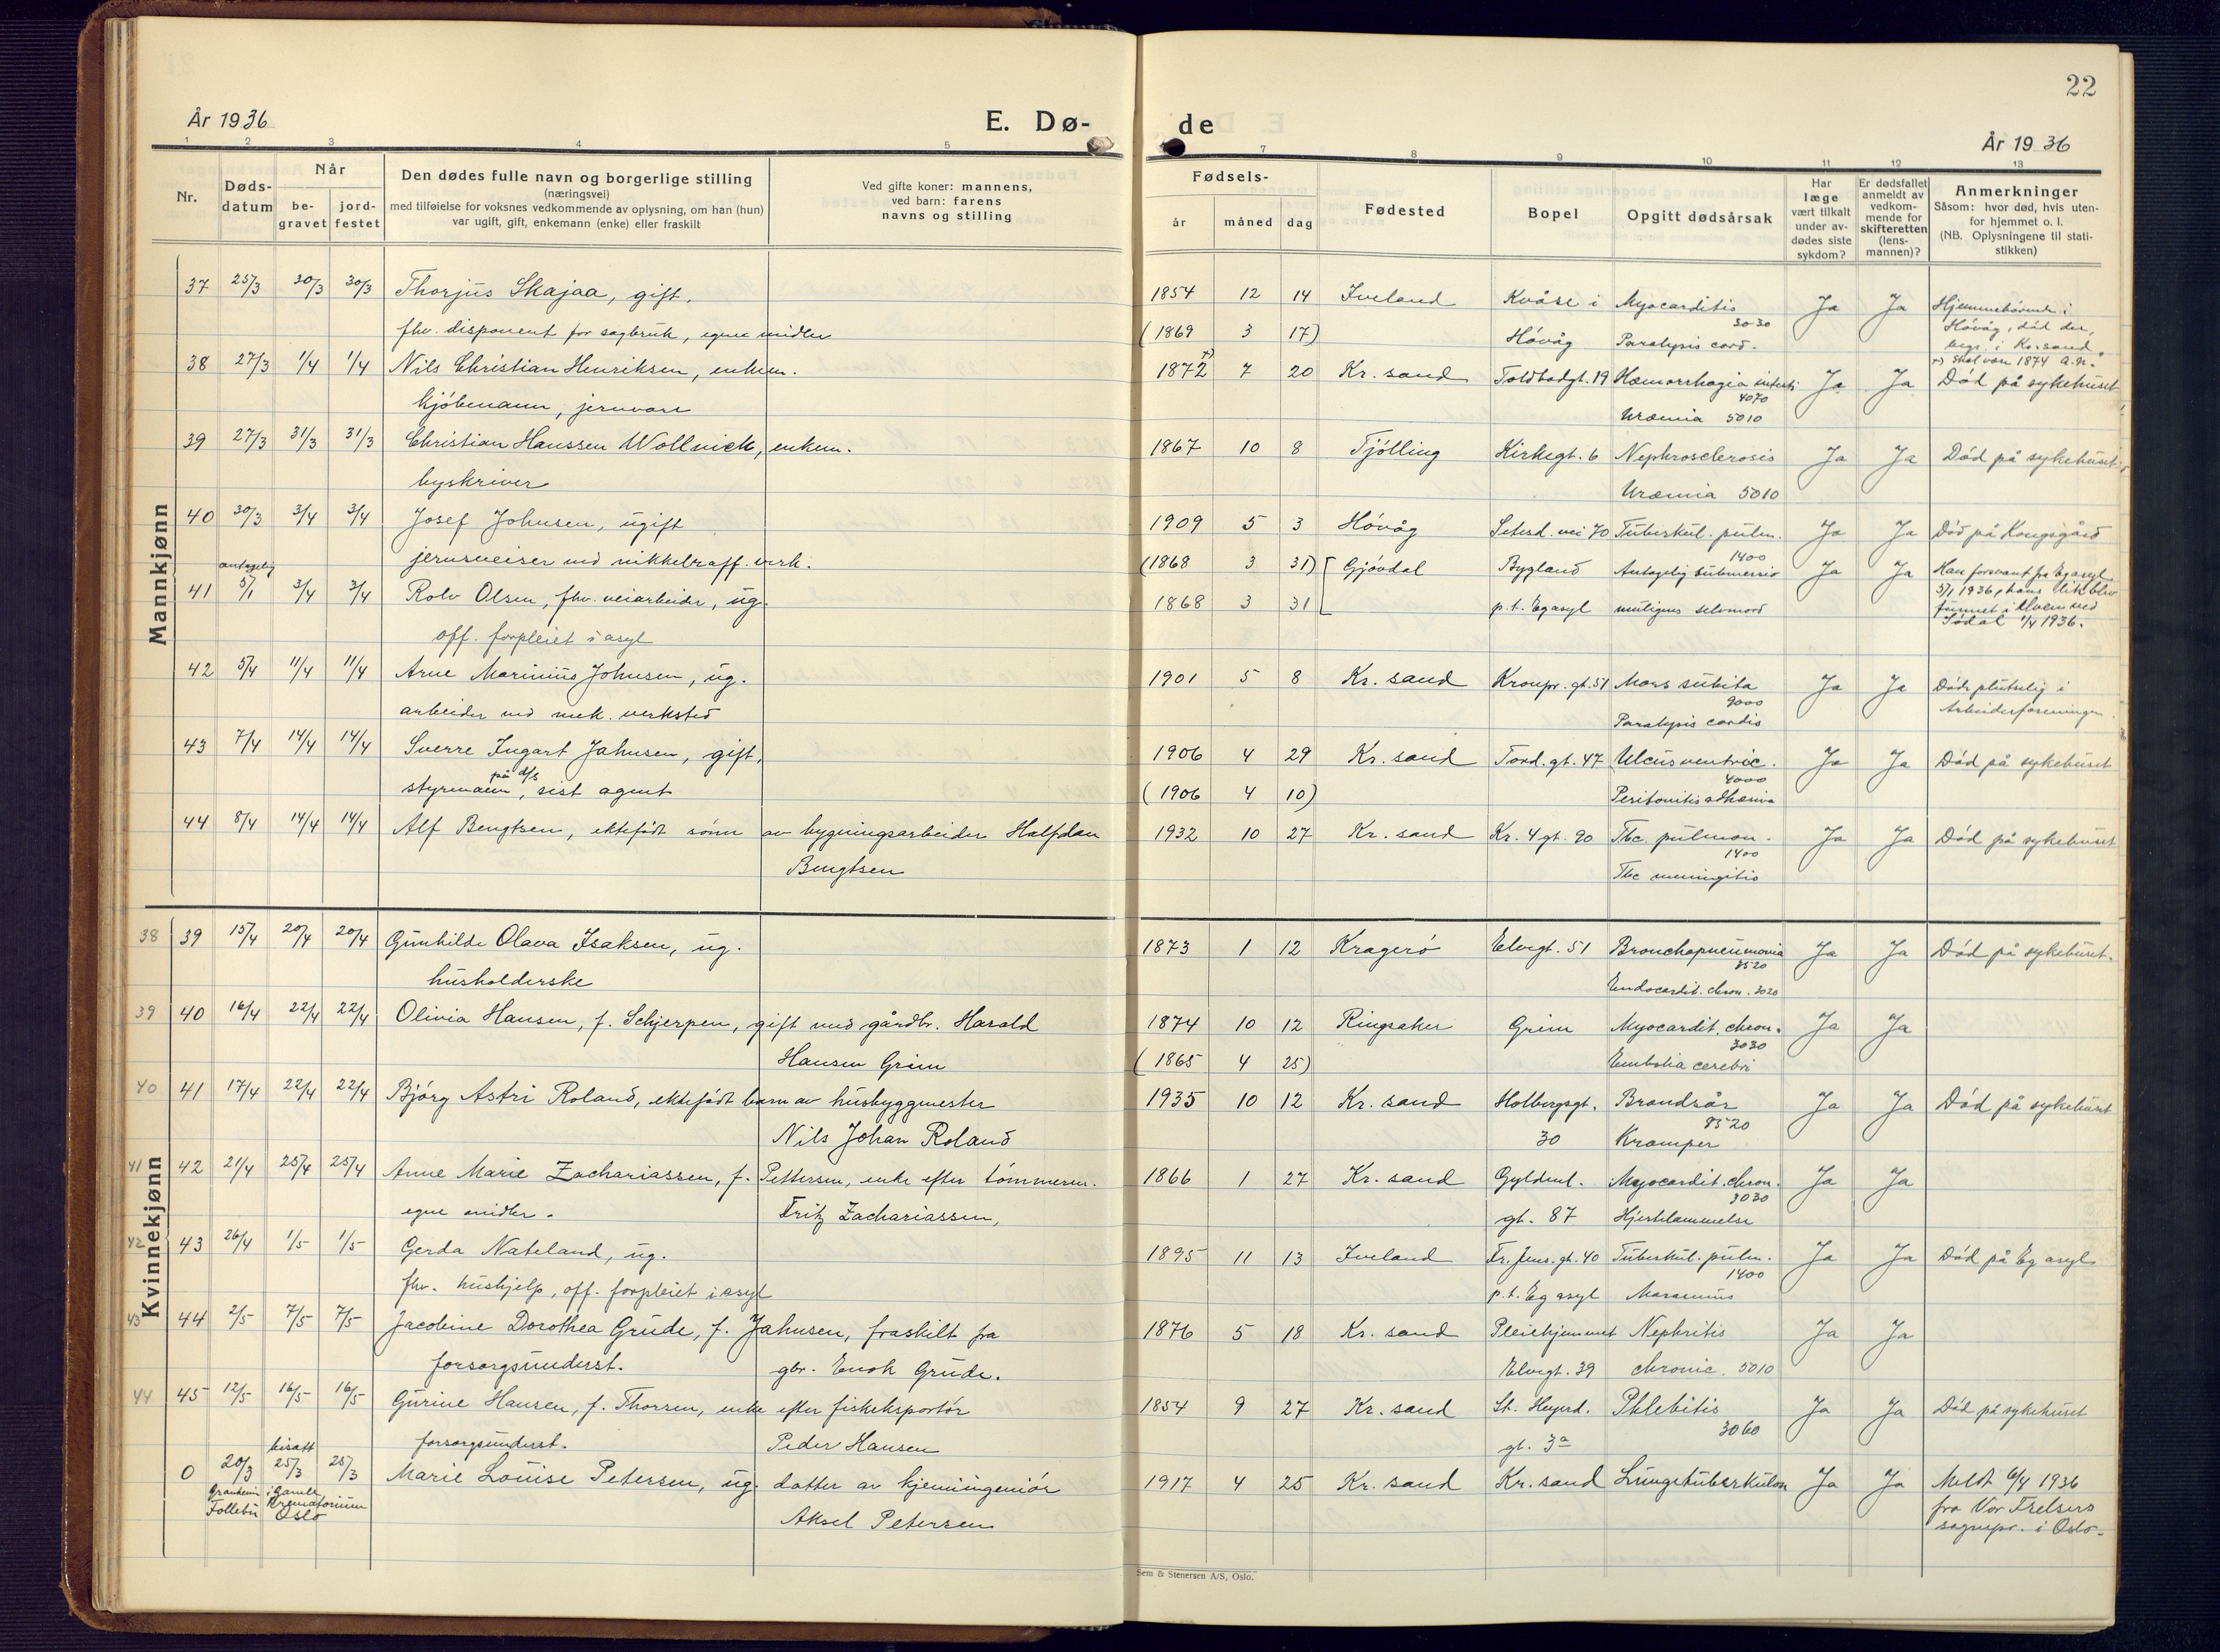 22
År 1936
E. Dø-
de
År 1936
1 2 3 4 5
7 8 9 10 11 12 13
Nr.
Døds-
datum
Når
be-
gravet
jord-
festet
Den dødes fulle navn og borgerlige stilling
(næringsvei)
med tilføielse for voksnes vedkommende av oplysning, om han (hun)
var ugift, gift, enkemann (enke) eller fraskilt
Ved gifte koner: mannens,
ved barn: farens
navns og stilling
Fødsels-
år måned dag
Fødested
Bopel
Opgitt dødsårsak
Har
læge
vært tilkalt
under av-
dødes siste
sykdom?
Er dødsfallet
anmeldt av
vedkom-
mende for
skifteretten
(lens-
mannen)?
Anmerkninger
Såsom: hvor død, hvis uten-
for hjemmet o. l.
(NB. Oplysningene til stati-
stikken)
Mannkjønn
37 25/3 30/3 30/3 Thorjus Skajaa, gift. 1854 12 14 Iveland Kvåse i Myocarditis Ja Ja Hjemmehörende i
fhv. disponent for sagbruk, egne midler (1869 3 17) Hóvåg 3030 Paralysis cord. Hóvåg, död der,
begr. i Kr.sand.
38 27/3 1/4 1/4 Nils Christian Henriksen, enkem. 1872 +) 7 20 Kr. sand Toldbodgt. 19 Hæmorrhagia intesti Ja Ja +) Skal være 1874 a.n.
Död på sykehuset
kjöbmann, jernvare 4070
Uræmia 5010
39 27/3 31/3 31/3 Christian Hanssen Wollnick, enkem. 1867 10 8 Tjölling Kirkegt. 6 Nephrosclerosis Ja Ja Död på sykehuset
byskriver Uræmia 5010
40 30/3 3/4 3/4 Josef Johnsen, ugift 1909 5 3 Hóvåg Setesd. vei 70 Tuberkul. pulm. Ja Ja Död på Kongsgård
jernsveiser ved nikkelraff. verk. 1400
antagelig
41 5/1 3/4 3/4 Rolv Olsen, fhv. veiarbeider, ug. (1868 3 31) Gjövdal Bygland Antagelig submersio Ja Ja Han forsvant fra Eg asyl
off. forpleiet i asyl 1868 3 31 p.t. Eg asyl muligens selvmord 5/1 1936, hans lik blev
funnet i elven ved
Jödal 1/4 1936.
42 5/4 11/4 11/4 Arne Marinius Johnsen, ug. 1901 5 8 Kr. sand Kronpr. gt. 51 Mors subita Ja Ja Döde plutselig i
arbeider ved mek. verksted 9000
Paralysis cordis Arbeiderforeningen
43 7/4 14/4 14/4 Sverre Ingart Jahnsen, gift. 1906 4 29 Kr. sand Tord. gt. 47 Ulcus ventric. Ja Ja Död på sykehuset
styrmann på d/s, sist agent (1906 4 10) 4000
Peritonitis adhæsiva
44 8/4 14/4 14/4 Alf Bengtsen, ektefödt sönn av bygningsarbeider Halfdan 1932 10 27 Kr. sand Kr. 4 gt. 90 Tbc. pulmon. Ja Ja Död på sykehuset
Bengtsen 1400
Tbc meningitis
Kvinnekjønn
38 39 15/4 20/4 20/4 Gunhilde Olava Isaksen, ug. 1873 1 12 Krageró Elvegt. 51 Bronchopneumonia Ja Ja Död på sykehuset.
husholderske 3520
Endocardit. chron. 3020
39 40 16/4 22/4 22/4 Olivia Hansen, f. Schjerpen, gift med gårdbr. Harald 1874 10 12 Ringsaker Grim Myocardit. chron. Ja Ja
Hansen Grim (1865 4 25) 3030
Embolia cerebri
40 41 17/4 22/4 22/4 Bjórg Astri Roland, ektefödt barn av husbyggmester 1935 10 12 Kr. sand Holbergsgt. Brandsår Ja Ja Död på sykehuset
Nils Johan Roland 30 8520
Kramper
41 42 21/4 25/4 25/4 Anne Marie Zachariassen, f. Pettersen, enke efter tömmerm. 1866 1 27 Kr. sand Gyldenl. Myocardit. chron. Ja Ja
egne midler. Fritz Zachariassen, gt. 87 3030
Hjertelammelse
42 43 26/4 1/5 1/5 Gerda Nateland, ug. 1895 11 13 Iveland Fr. Jens. gt. 40 Tuberkul. pulm. Ja Ja Död på Eg asyl
fhv. hushjelp, off. forpleiet i asyl p.t. Eg asyl 1400
Marasmus
43 44 2/5 7/5 7/5 Jacobine Dorothea Grude, f. Jahnsen, fraskilt fra 1876 5 18 Kr. sand Pleiehjemmet Nephritis Ja Ja
forsorgsunderst. gbr. Enok Grude. Elvegt. 39 chronic. 5010
44 45 12/5 16/5 16/5 Gurine Hansen, f. Thorsen, enke efter fiskeksportör 1854 9 27 Kr. sand St. Heyerd. Phlebitis Ja Ja Död på sykehuset
forsorgsunderst. Peder Hansen gt. 3a 3060
0 20/3 bisatt 25/3 25/3 Marie Louise Petersen, ug. datter av kjemiingeniör 1917 4 25 Kr. sand Kr. sand Lungetuberkulose Ja Ja Meldt 6/4 1936
Granheim Follebu i Gamle Krematorium Oslo Aksel Petersen fra Vor Frelsers
sognepr. i Oslo.
Sem & Stenersen A/S, Oslo.